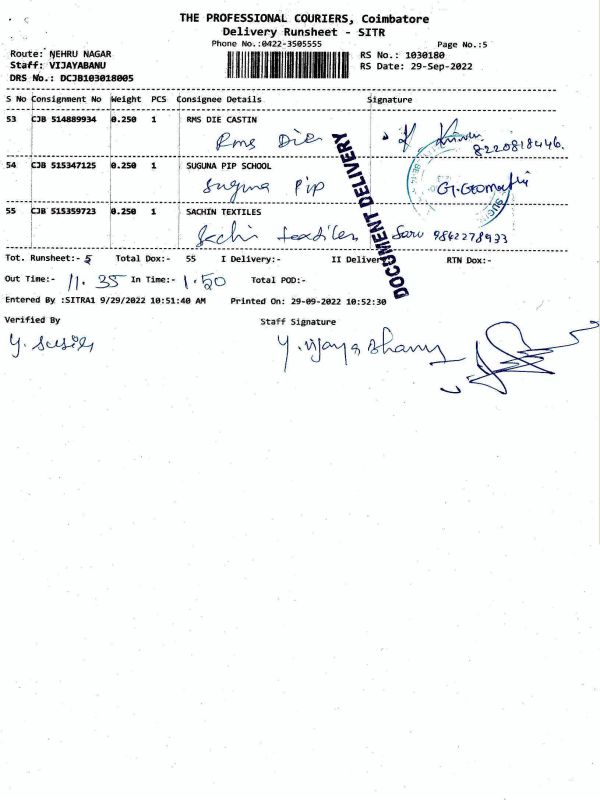 THE PROFESSIONAL COURIERS, Coimbatore
Delivery Runsheet - SITR
Phone No.:0422-3505555 Page No.:5
Route: NEHRU NAGAR RS No.: 1030180
Staff: VIJAYABANU RS Date: 29-Sep-2022
DRS No.: DCJB103018005
S No Consignment No Weight PCS Consignee Details Signature
53 CJB 514889934 0.250 1 RMS DIE CASTIN
Rms Die
8220818446.
54 CJB 515347125 0.250 1 SUGUNA PIP SCHOOL
Suguna Pip
DOCUMENT DELIVERY
55 CJB 515359723 0.250 1 SACHIN TEXTILES
Sachi textiles Saru 9842278933
Tot. Runsheet:- 5 Total Dox:- 55 I Delivery:- II Delivery:- RTN Dox:-
Out Time:- 11.35 In Time:- 1.50 Total POD:-
Entered By :SITRA1 9/29/2022 10:51:40 AM Printed On: 29-09-2022 10:52:30
Verified By Staff Signature
Y. Vijaya Bhanu